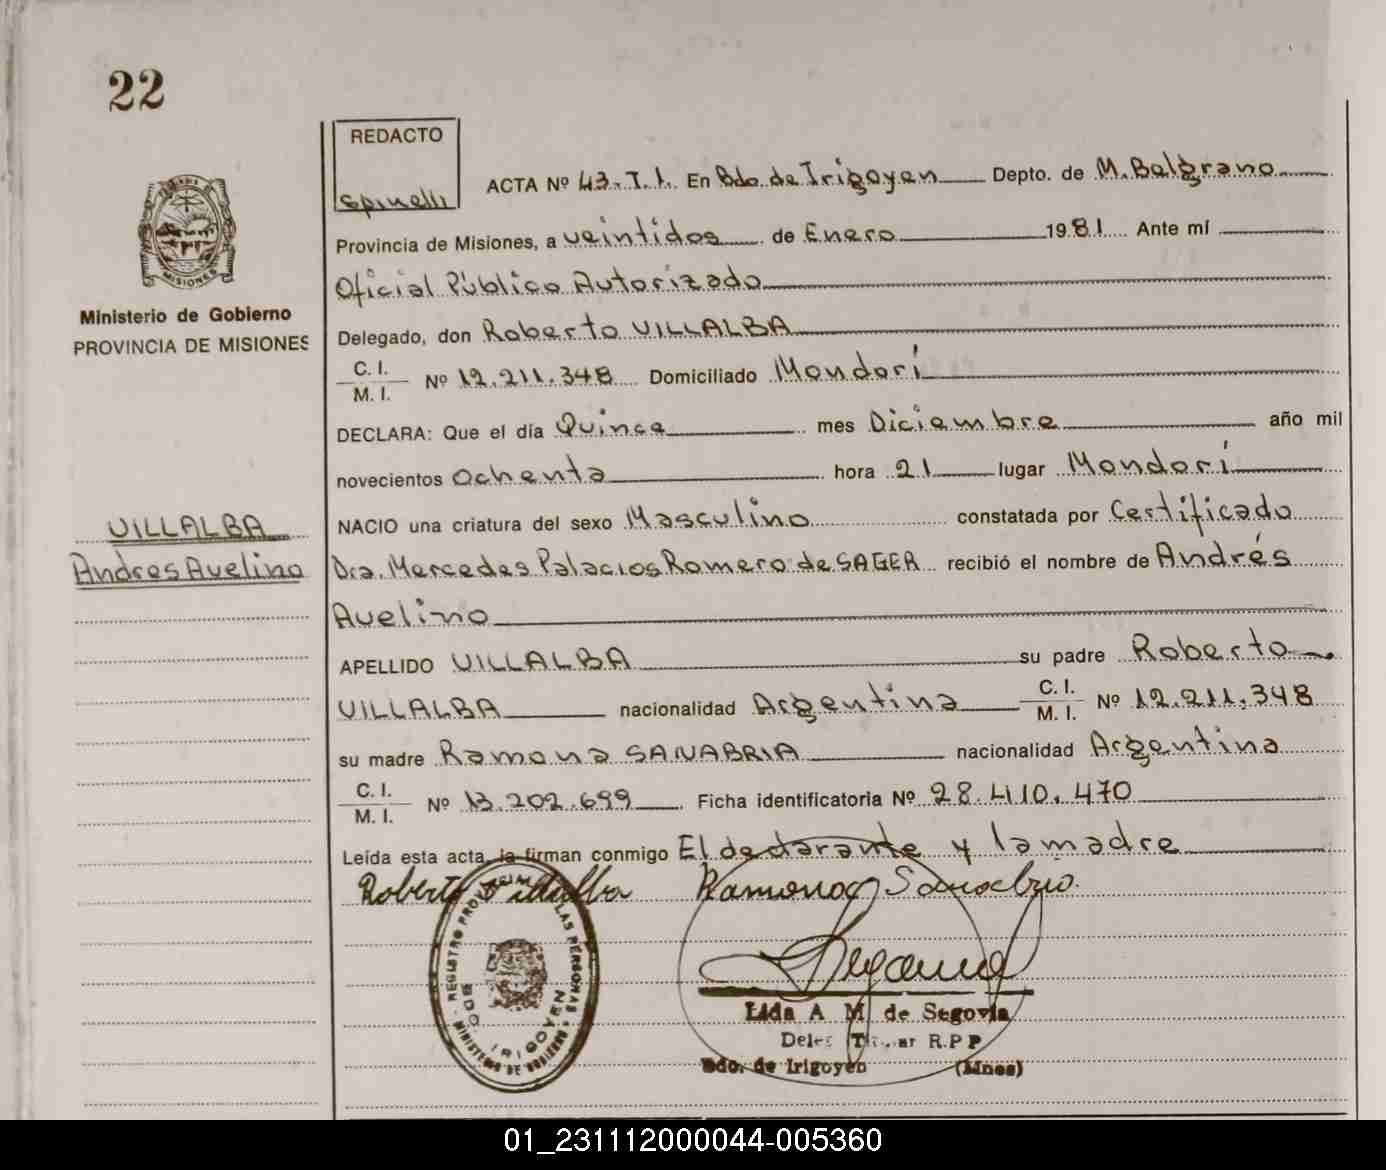 22
REDACTO
Spinelli
ACTA Nº 43. T. 1. En Bdo. de Irigoyen Depto. de M. Belgrano
MISIONES
Provincia de Misiones, a veintidos de Enero 1981 Ante mí
Oficial Público Autorizado
Ministerio de Gobierno
PROVINCIA DE MISIONES
Delegado, don Roberto VILLALBA
C. I.
M. I. Nº 12.211.348 Domiciliado Mondorí
DECLARA: Que el día Quince mes Diciembre año mil
novecientos Ochenta hora 21 lugar Mondorí
VILLALBA
Andres Avelino
NACIO una criatura del sexo Masculino constatada por Certificado
Dra. Mercedes Palacios Romero de SAGER recibió el nombre de Andrés
Avelino
APELLIDO VILLALBA su padre Roberto
VILLALBA nacionalidad Argentina C. I. M. I. Nº 12.211.348
su madre Ramona SANABRIA nacionalidad Argentina
C. I.
M. I. Nº 13.202.699 Ficha identificatoria Nº 28.410.470
Leída esta acta, la firman conmigo El declarante y la madre
Roberto Villalba Ramona Sanabria
REGISTRO PROVINCIAL DE LAS PERSONAS
BDO. IRIGOYEN
MINISTERIO DE GOBIERNO
Lida A M de Segovia
Deleg Titular R.P.P
Bdo. de Irigoyen (Mnes)
01_231112000044-005360